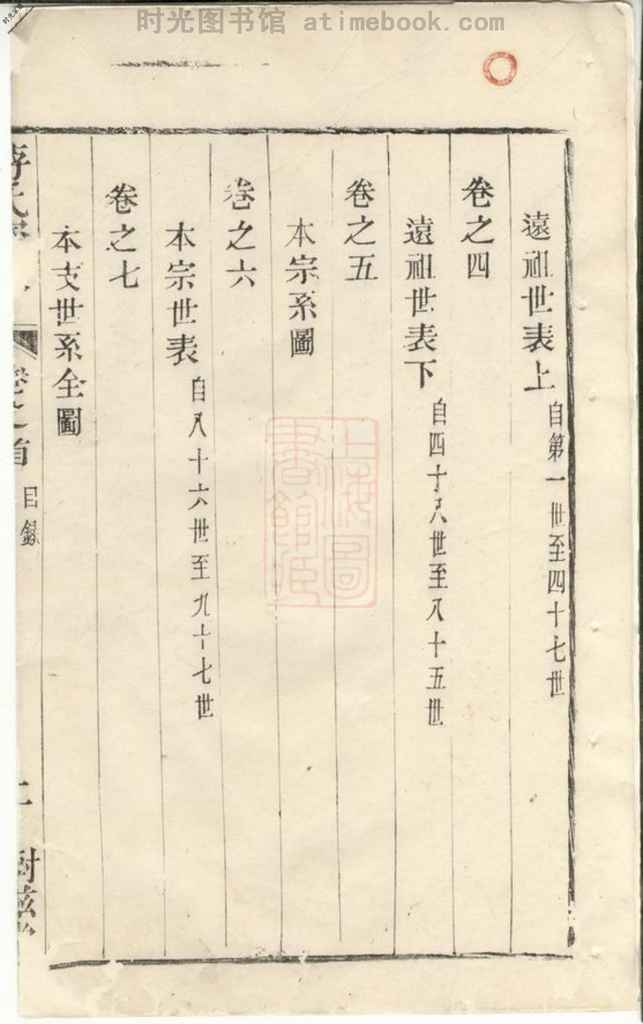 时光图书馆 atimebook.com
遠祖世表上 自第一世至四十七世
卷之四
遠祖世表下 自四十八世至八十五世
卷之五
本宗系圖
卷之六
本宗世表 自八十六世至九十七世
卷之七
本支世系全圖
目錄